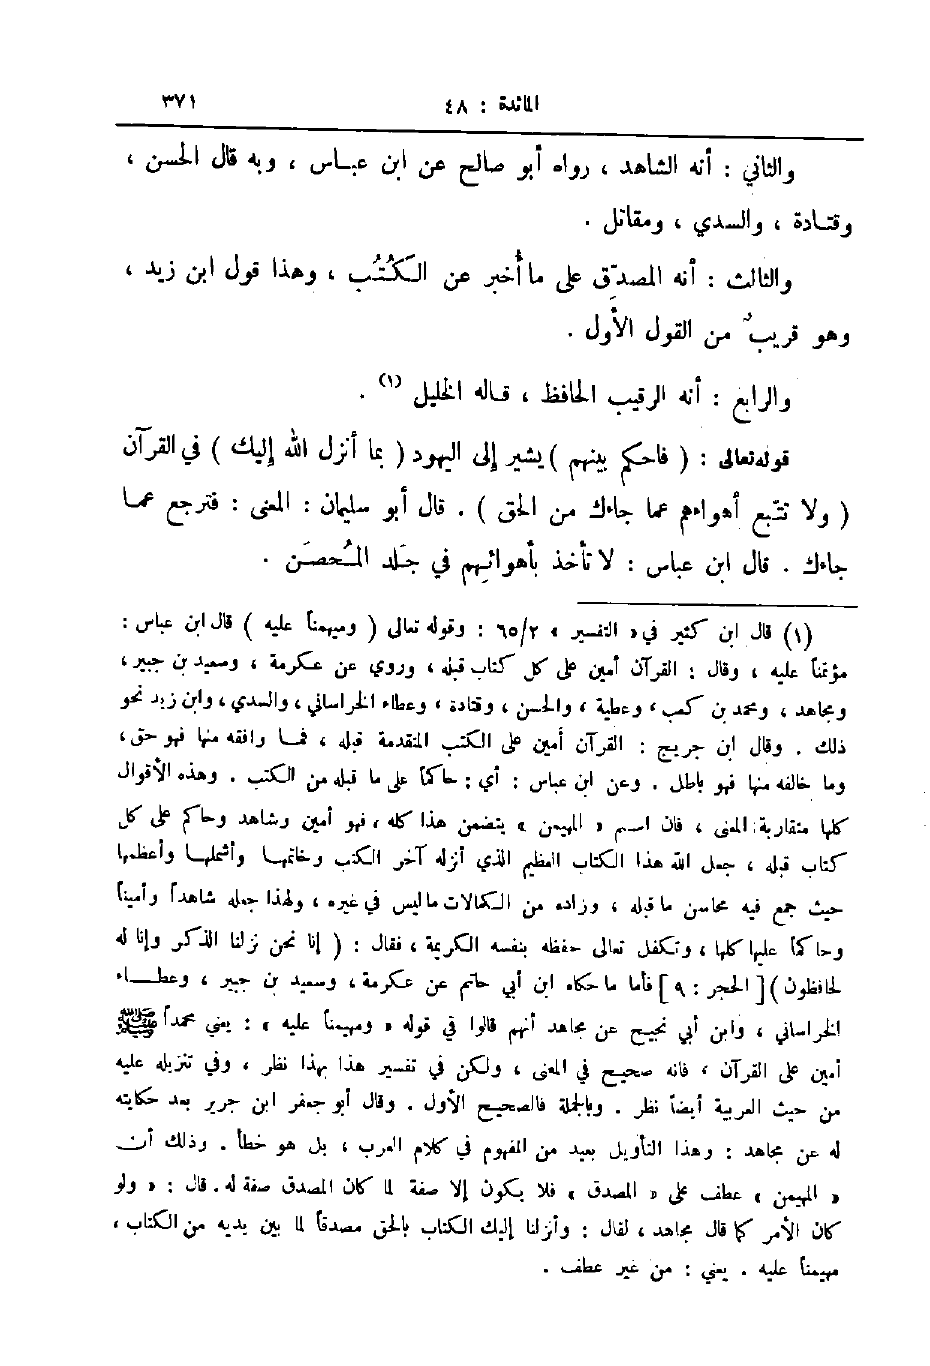 المائدة : ٤٨
٣٧١
والثاني : أنه الشاهد ، رواه أبو صالح عن ابن عبـاس ، وبه قال الحسن ،
وقتـادة ، والسدي ، ومقاتل .
والثالث : أنه المصدِّق على ما أُخبر عن الكُتُب ، وهذا قول ابن زيد ،
وهو قريبٌ من القول الأول .
والرابع : أنه الرقيب الحافظ ، قـاله الخليل (١) .
قوله تعالى : ( فاحكم بينهم ) يشير إلى اليهود ( بما أنزل الله إليك ) في القرآن
( ولا تتَّبع أهواءهم عما جاءك من الحق ) . قال أبو سليمان : المعنى : فترجع عمـا
جاءك . قال ابن عباس : لا تأخذ بأهوائهم في جَلد المُحصَن .
(١) قال ابن كثير في « التفسير » ٦٥/٢ : وقوله تعالى ( ومهيمناً عليه ) قال ابن عباس :
مؤتمناً عليه ، وقال : القرآن أمين على كل كتاب قبله ، وروي عن عكرمة ، وسعيد بن جبير ،
ومجاهد ، ومحمد بن كعب ، وعطية ، والحسن ، وقتادة ، وعطاء الخراساني ، والسدي ، وابن زيد نحو
ذلك . وقال ابن جريج : القرآن أمين على الكتب المتقدمة قبله ، فمـا وافقه منها فهو حق ،
وما خالفه منها فهو باطل . وعن ابن عباس : أي : حاكماً على ما قبله من الكتب . وهذه الأقوال
كلها متقاربة المعنى ، فان اسم « المهيمن » يتضمن هذا كله ، فهو أمين وشاهد وحاكم على كل
كتاب قبله ، جعل الله هذا الكتاب العظيم الذي أنزله آخر الكتب وخاتمها وأشملها وأعظمها
حيث جمع فيه محاسن ما قبله ، وزاده من الكمالات ما ليس في غيره ، ولهذا جعله شاهداً وأميناً
وحاكماً عليها كلها ، وتكفل تعالى حفظه بنفسه الكريمة ، فقال : ( إنا نحن نزلنا الذكر وإنا له
لحافظون ) [ الحجر : ٩ ] فأما ما حكاه ابن أبي حاتم عن عكرمة ، وسعيد بن جبير ، وعطـاء
الخراساني ، وابن أبي نجيح عن مجاهد أنهم قالوا في قوله « ومهيمناً عليه » : يعني محمداً ﷺ
أمين على القرآن ، فانه صحيح في المعنى ، ولكن في تفسير هذا بهذا نظر ، وفي تنزيله عليه
من حيث العربية أيضاً نظر . وبالجملة فالصحيح الأول . وقال أبو جعفر ابن جرير بعد حكايته
له عن مجاهد : وهذا التأويل بعيد من المفهوم في كلام العرب ، بل هو خطأ . وذلك أن
« المهيمن » عطف على « المصدق » فلا يكون إلا صفة لما كان المصدق صفة له . قال : « ولو
كان الأمر كما قال مجاهد ، لقال : وأنزلنا إليك الكتاب بالحق مصدقاً لما بين يديه من الكتاب ،
مهيمناً عليه . يعني : من غير عطف .